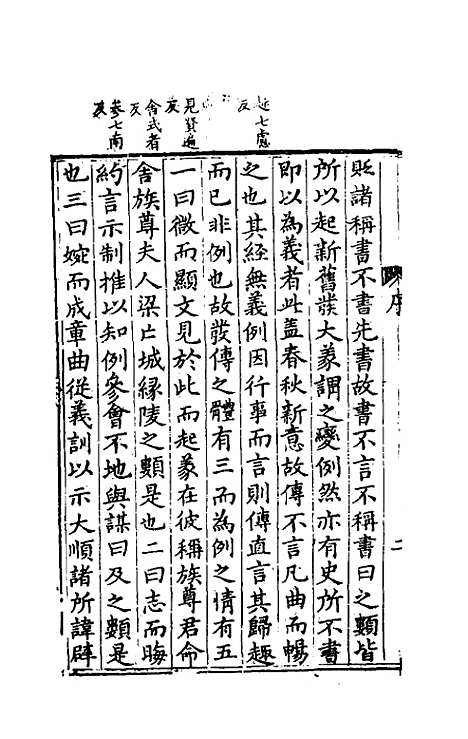 貶諸稱書不書先書故書不言不稱書曰之類皆
所以起新舊發大義謂之變例然亦有史所不書
即以為義者此蓋春秋新意故傳不言凡曲而暢
之也其經無義例因行事而言則傳直言其歸趣
而已非例也故發傳之體有三而為例之情有五
一曰微而顯文見於此而起義在彼稱族尊君命
舍族尊夫人梁亡城緣陵之類是也二曰志而晦
約言示制推以知例參會不地與謀曰及之類是
也三曰婉而成章曲從義訓以示大順諸所諱辟
序
二
趣七
反
見賢遍
反
舍音捨
反
參七南
反